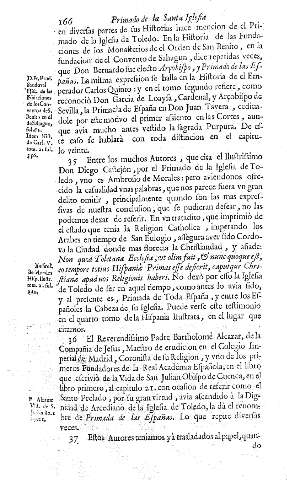 166 Primado de la Santa Iglesia
en diversas partes de sus Historias hace mencion de el Pri-
mado de la Iglesia de Toledo. En la Historia de las Funda-
ciones de los Monasterios de el Orden de San Benito, en la
fundacion de el Convento de Sahagun, dice repetidas veces,
que Don Bernardo fue electo Arçobispo, y Primado de las Es-
pañas. La misma expression se halla en la Historia de el Em-
perador Carlos Quinto: y en el tomo segundo refiere, como
reconoció Don Garcia de Loaysa, Cardenal, y Arçobispo de
Sevilla, la Primacía de España en Don Juan Tavera, cedien-
dole por este motivo el primer assiento en las Cortes, aun-
que avia mucho antes vestido la sagrada Purpura. De es-
te caso se hablará con toda distincion en el capitu-
lo veinte.
35 Entre los muchos Autores, que cita el Illustrissimo
Don Diego Castejon, por el Primado de la Iglesia de To-
ledo, uno es Ambrosio de Morales; pero aviendonos ofre-
cido la casualidad unas palabras, que nos parece fuera un gran
delito omitir, principalmente quando son las mas expres-
sivas de nuestra conclusion, que se pudieran desear, no las
podemos dexar de referir. En un tratadico, que imprimió de
el estado que tenia la Religion Catholica, imperando los
Arabes en tiempo de San Eulogio, assegura aver sido Cordo-
va la Ciudad donde mas florecia la Christiandad, y añade:
Non quod Toletana Ecclesia, ut olim fuit, & nunc quoque est,
eo tempore totius Hispaniæ Primas esse desierit, caputque Chri-
stianæ apud nos Religionis haberi. No dexó por esso la Iglesia
de Toledo de ser en aquel tiempo, como antes lo avia sido,
y al presente es, Primada de Toda España, y entre los Es-
pañoles la Cabeza de su Iglesia. Puede verse este testimonio
en el quarto tomo de la Hispania Ilustrata, en el lugar que
citamos.
36 El Reverendissimo Padre Bartholomé Alcazar, de la
Compañia de Jesus, Maestro de erudicion en el Colegio Im-
perial de Madrid, Coronista de su Religion, y uno de los pri-
meros Fundadores de la Real Académia Española, en el libro
que escrivió de la Vida de San Julian Obispo de Cuenca, en el
libro primero, al capitulo 21. con ocasion de referir como el
Santo Prelado, por su gran virtud, avia ascendido à la Dig-
nidad de Arcediano de la Iglesia de Toledo, la dà el renom-
bre de Primada de las Españas. Lo que repite diversas
veces.
37 Estos Autores teniamos yà trasladados al papel, quan-
do